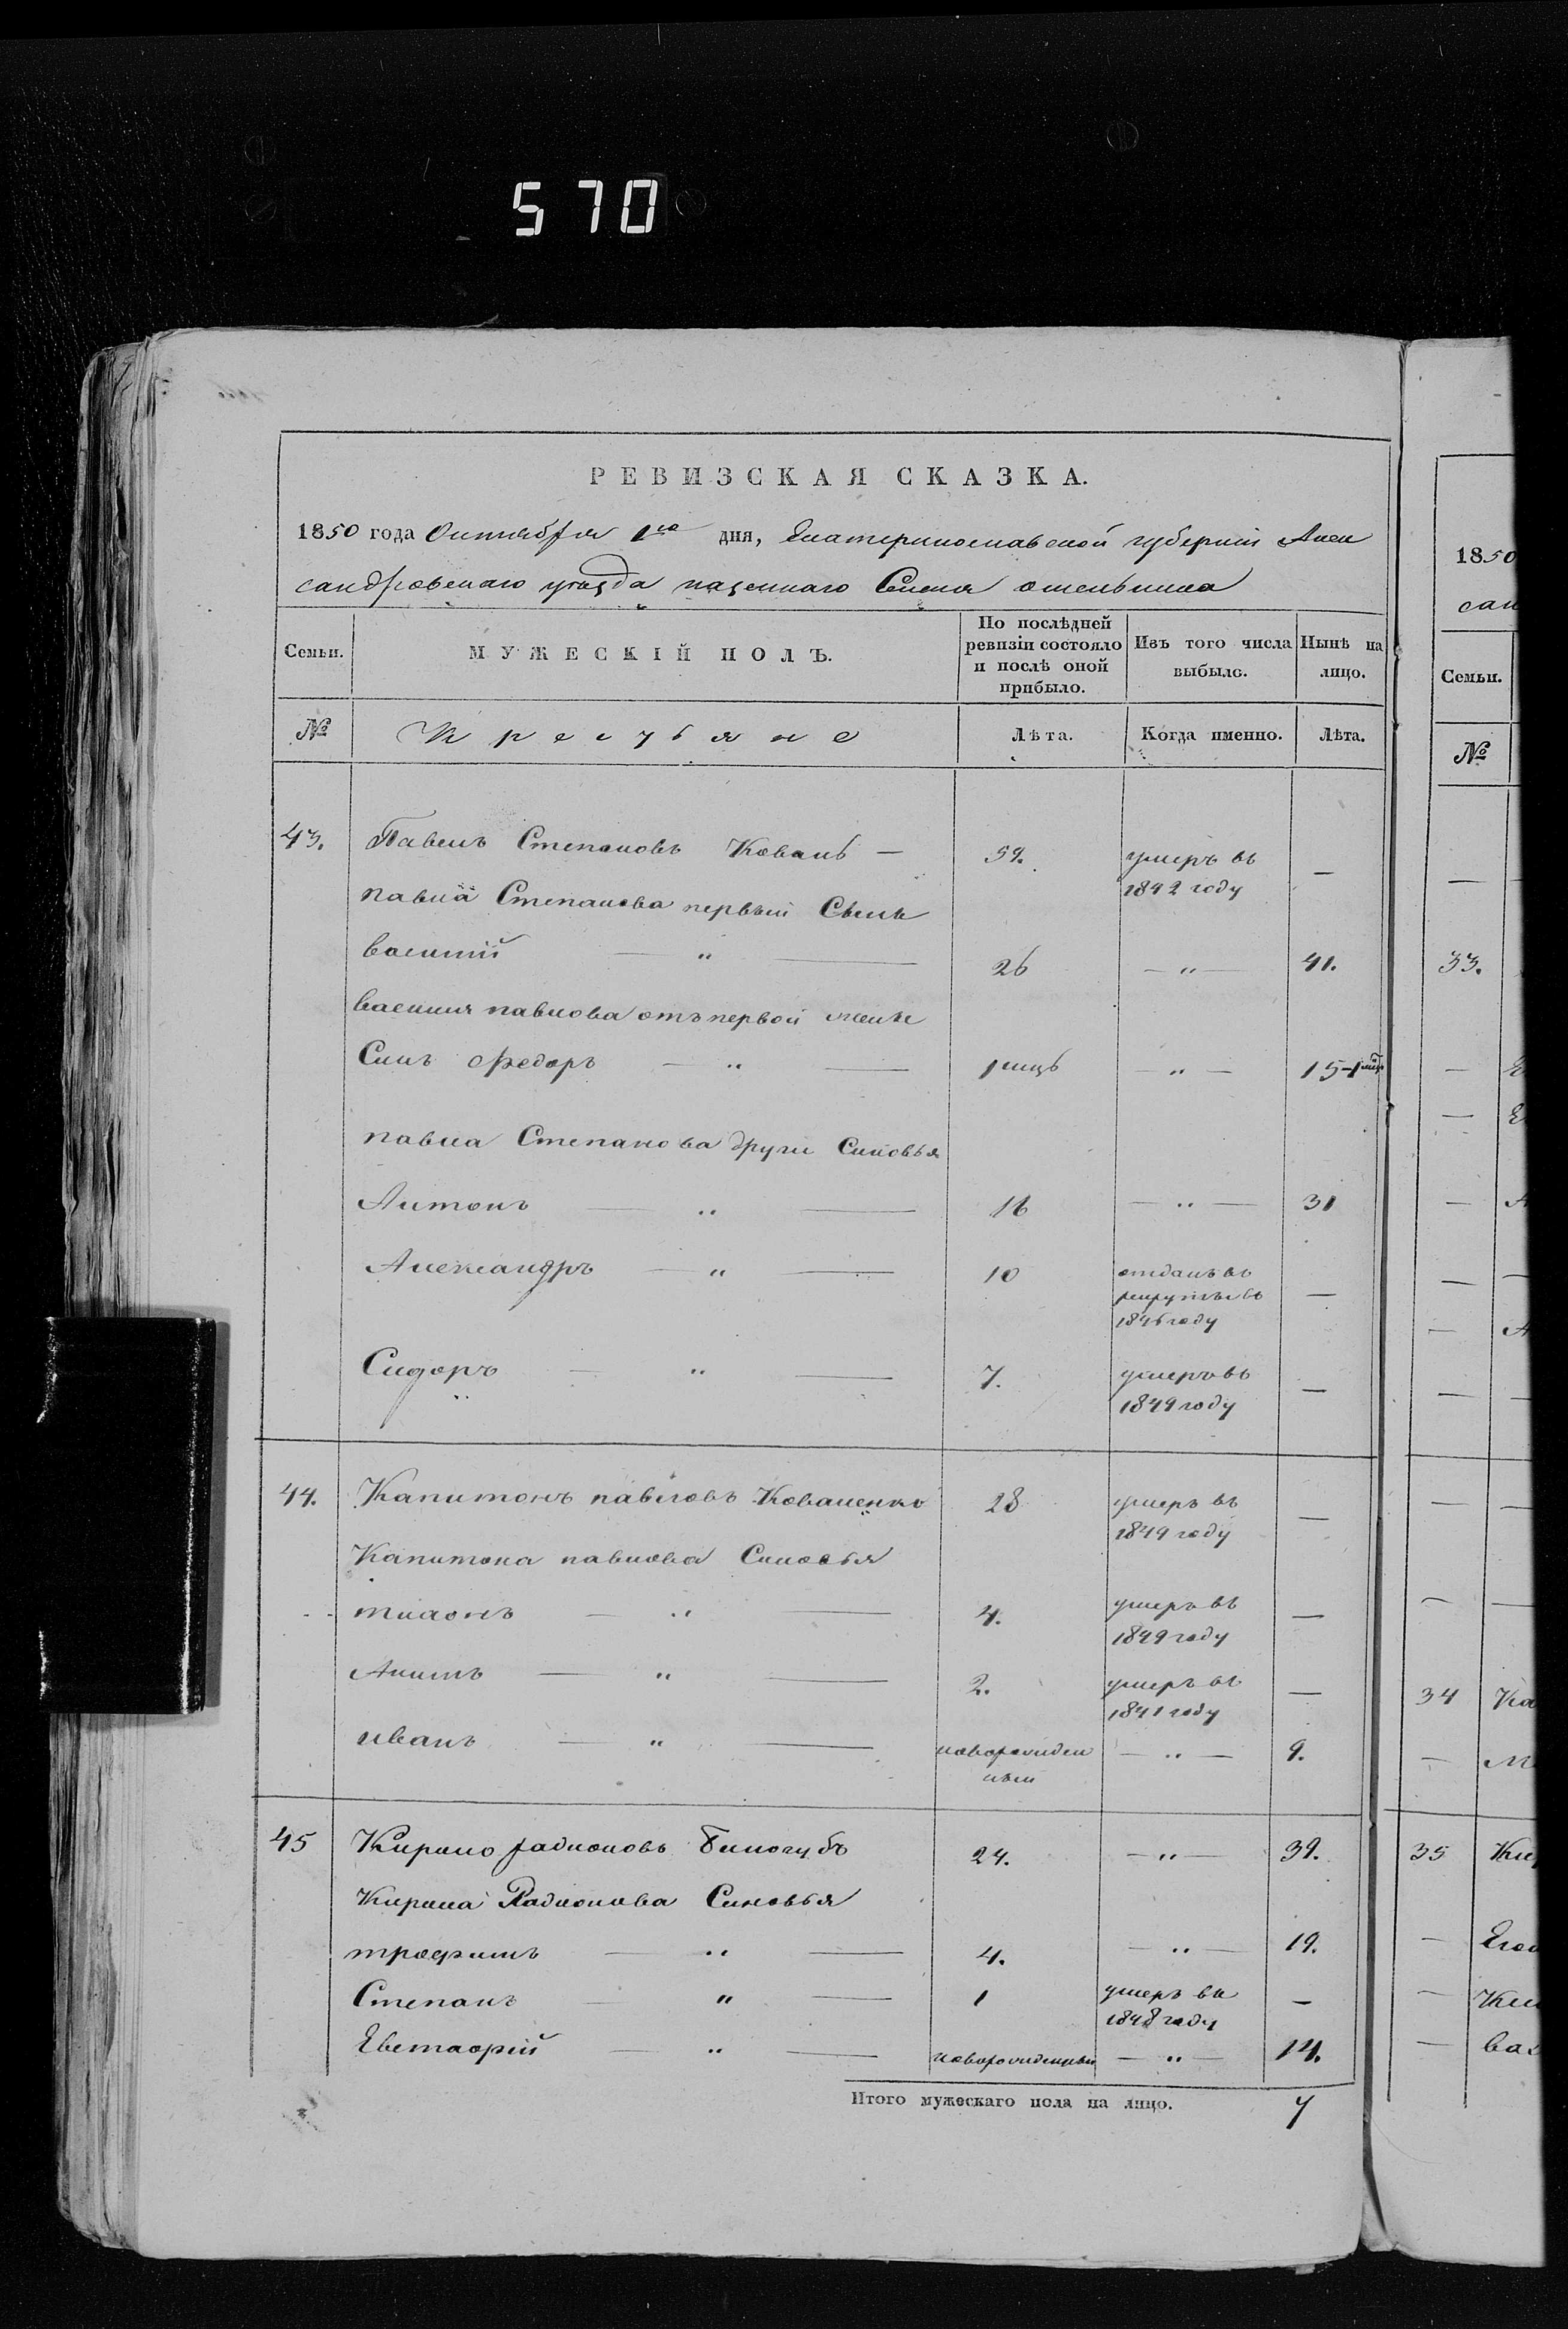 570
РЕВИЗСКАЯ СКАЗКА.
1850 года Октября 1го дня, Екатеринославской губернии Алек
сандровскаго уѣзда казеннаго Селенія
Семьи. МУЖЕСКІЙ ПОЛЪ. По послѣдней ревизіи состояло и послѣ оной прибыло. Изъ того числа выбыло. Нынѣ на лицо.
№ Крестьяне Лѣта. Когда именно. Лѣта.
43. Павелъ Степановъ Коваль — 59. умеръ въ 1842 году —
павла Степанова первый Сынъ
василій — " — 26 — " — 41.
василия павлова отъ первой жены
Синъ Федоръ — " — 1 мцъ — " — 15-1
павла Степанова други Синовья
Антонъ — " — 16 — " — 31
Александръ — " — 10 отданъ въ рекруты въ 1846 году —
Сидоръ — " — 7. умеръ въ 1849 году —
44. Капитонъ павловъ Коваленко 28 умеръ въ 1849 году —
Капитона павлова Синовья
тихонъ — " — 4. умеръ въ 1849 году —
Акимъ — " — 2. умеръ въ 1841 году —
иванъ — " — новорожден ный — " — 9.
45 Кирило радионовъ Билогубъ 24. — " — 39.
Кирила Радионова Синовья
трофимъ — " — 4. — " — 19.
Степанъ — " — 1 умеръ въ 1848 году —
Евстафій — " — новорожденный — " — 14.
Итого мужескаго пола на лицо. 7
1850
сан
Семьи.
№
33.
34 Ка
35 Кир